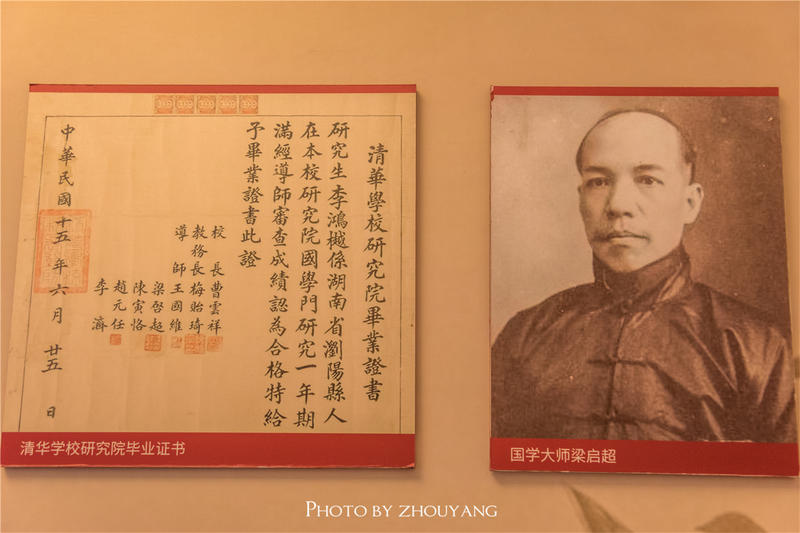 清華學校研究院畢業證書
研究生李鴻樾係湖南省瀏陽縣人
在本校研究院國學門研究一年期
滿經導師審查成績認為合格特給
予畢業證書此證
校長曹雲祥
教務長梅貽琦
導師王國維
梁啓超
陳寅恪
趙元任
李濟
中華民國十五年六月廿五日
清华学校研究院毕业证书
国学大师梁启超
PHOTO BY ZHOUYANG